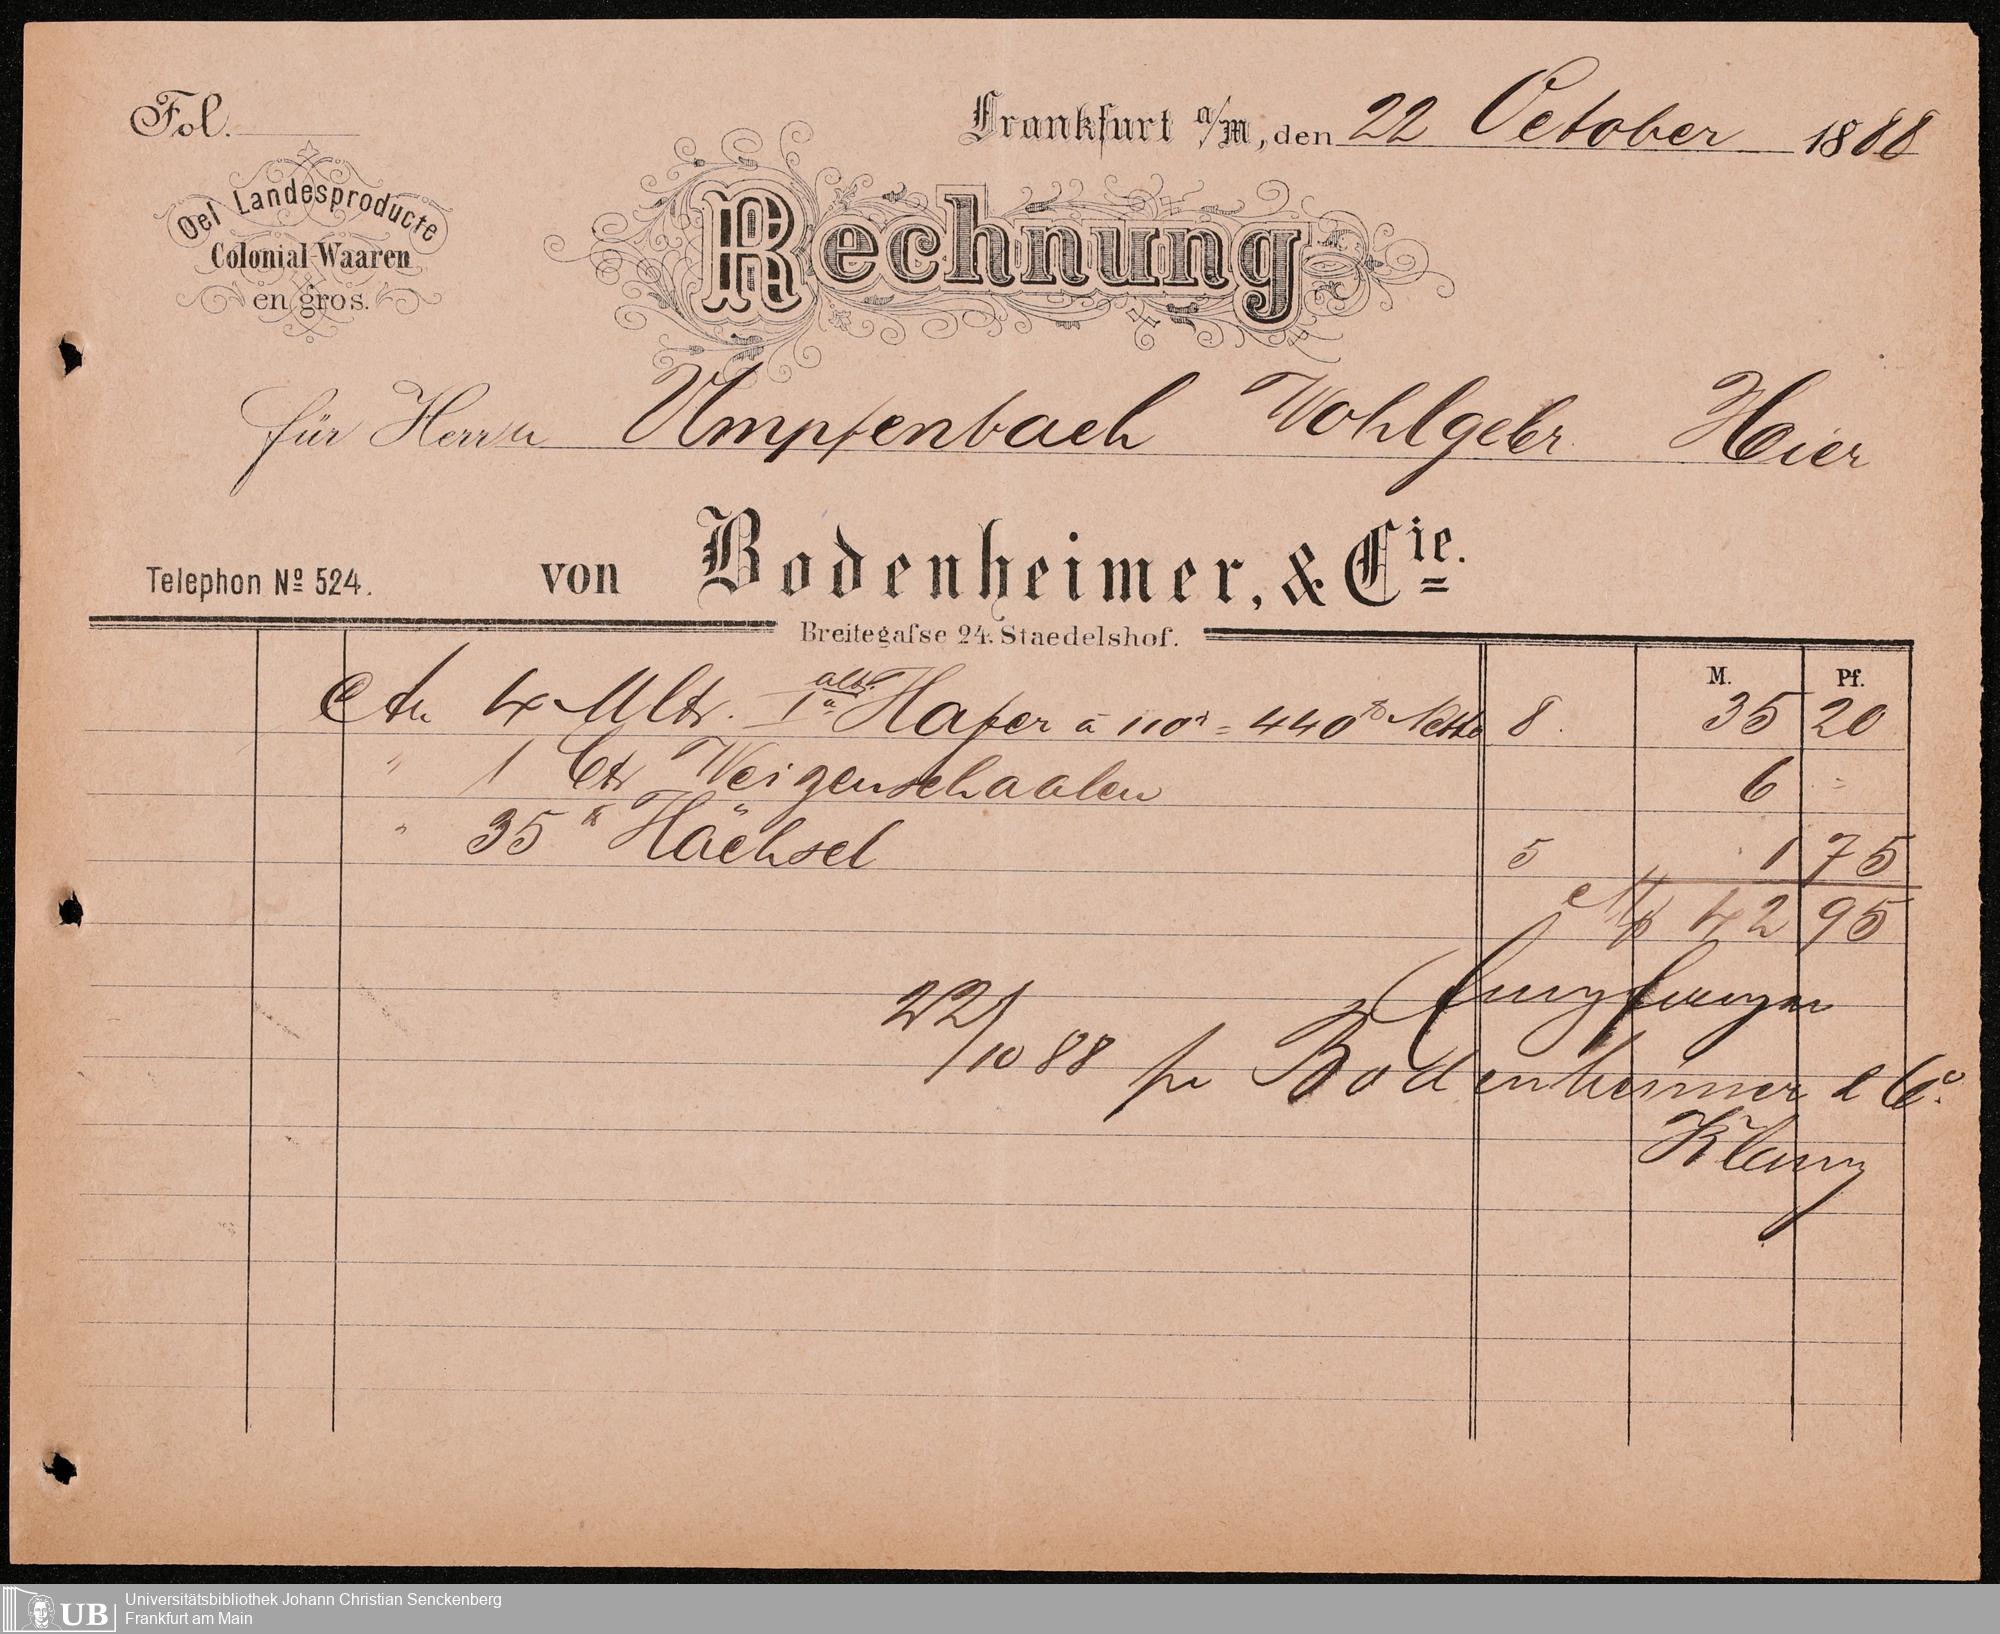 Fol.
Frankfurt a/M, den 22 October 1888
Oel Landesproducte
Colonial-Waaren
en gros.
Rechnung
für Herrn Umpfenbach Wohlgebr. Hier
Telephon Nº 524. von Bodenheimer, & Cie.
Breitegasse 24. Staedelshof.
M. Pf.
An 4 Mltr. alt. Iª Hafer à 110 = 440 Netto 8. 35 20
" 1 Ctr Weizenschaalen 6 =
" 35 Häcksel 5 1 75
M 42 95
Empfangen
22/10 88 pr Bodenheimer & Co.
Universitätsbibliothek Johann Christian Senckenberg
UB
Frankfurt am Main